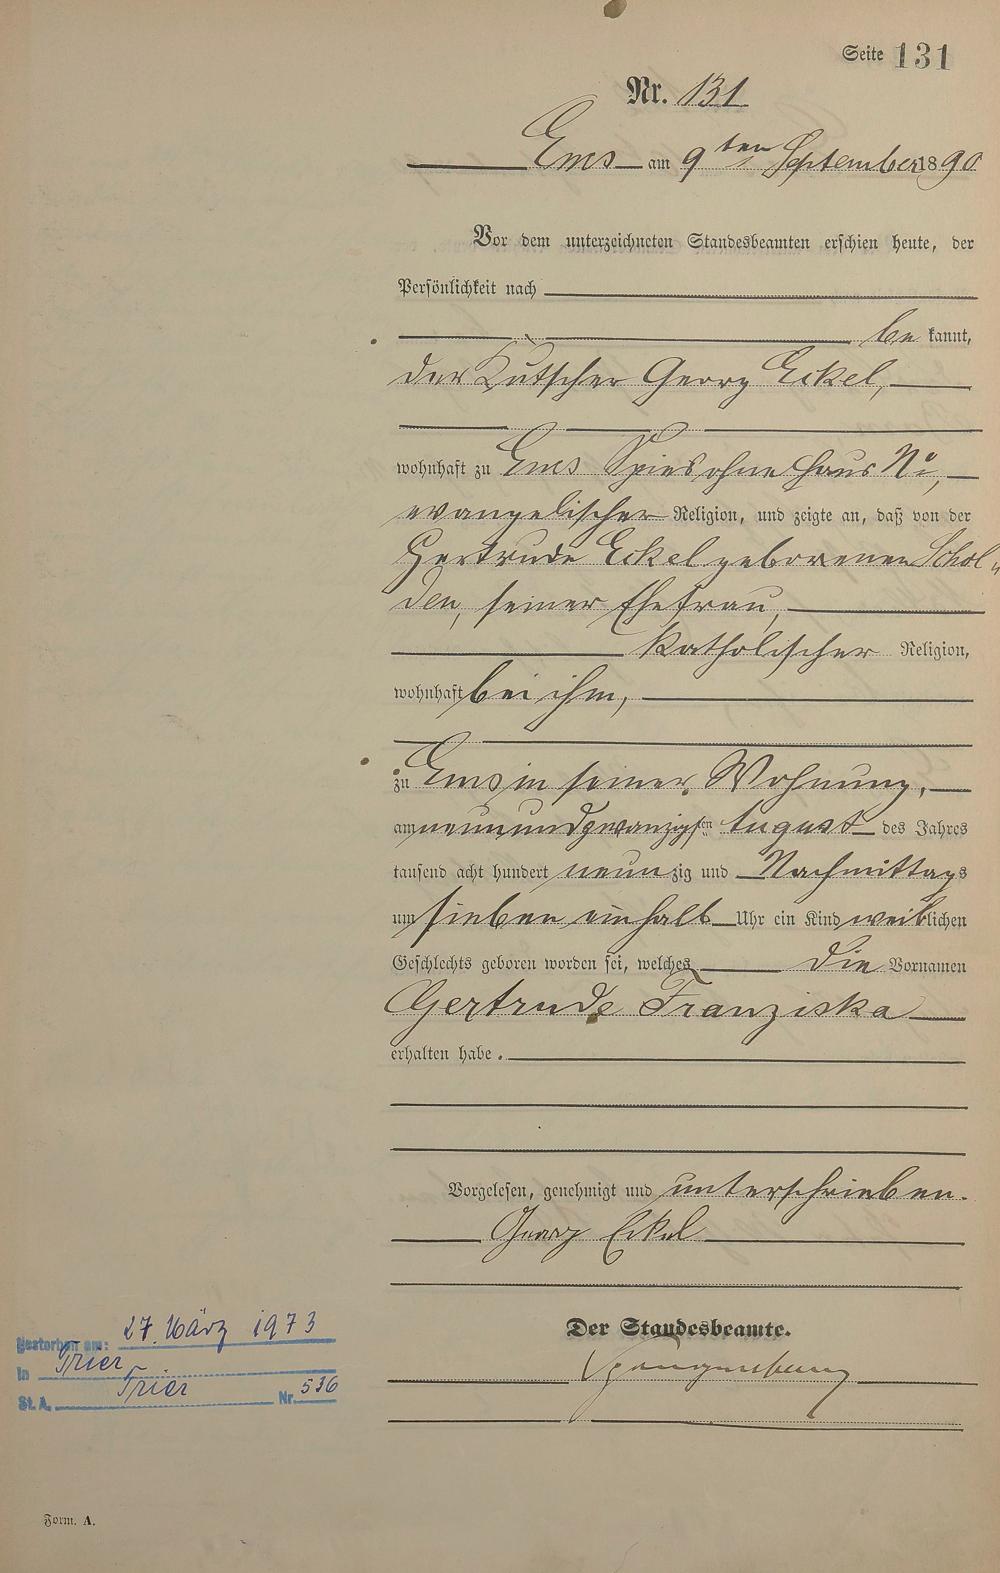 Seite 131
Nr. 131
Ems am 9ten September 1890
Vor dem unterzeichneten Standesbeamten erschien heute, der
Persönlichkeit nach
be kannt,
der Kutscher Georg Eckel,
wohnhaft zu Ems Spies ohne Haus No,
evangelischer Religion, und zeigte an, daß von der
Gertrude Eckel geborenen Schol-
den, seiner Ehefrau,
katholischer Religion,
wohnhaft bei ihm,
zu Ems in seiner Wohnung,
am neunundzwanzigsten August des Jahres
tausend acht hundert neunzig und Nachmittags
um sieben einhalb Uhr ein Kind weiblichen
Geschlechts geboren worden sei, welches die Vornamen
Gertrude Franziska
erhalten habe.
Vorgelesen, genehmigt und unterschrieben.
Georg Eckel
Der Standesbeamte.
Gestorben am: 27. März 1973
in Trier
St. A. Trier Nr. 536
Form. A.